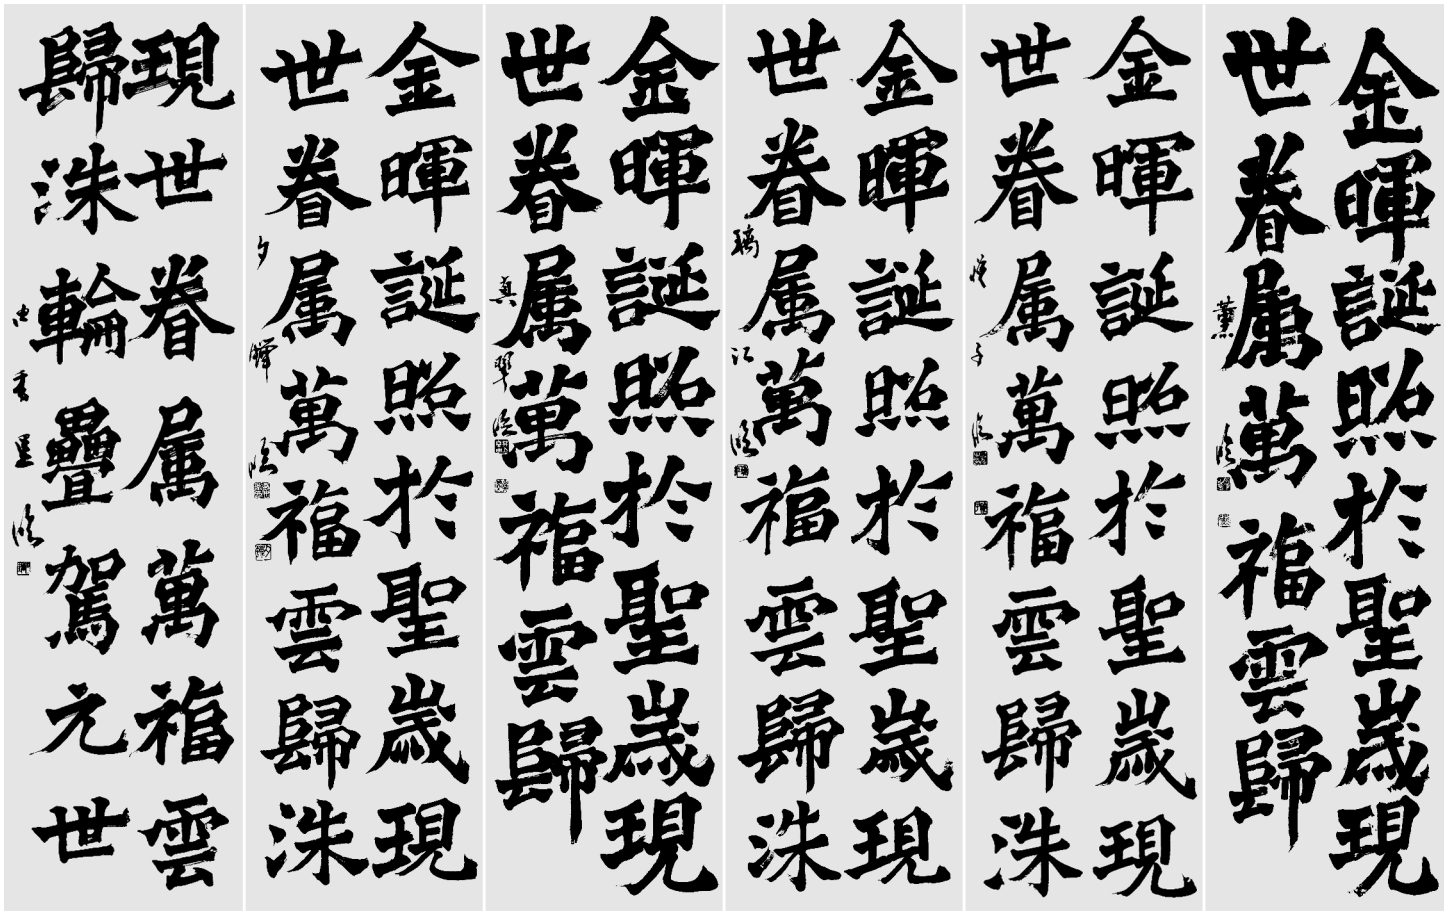 金暉誕照於聖歲現
世眷属萬福雲歸
薰臨
金暉誕照於聖歲現
世眷属萬福雲歸洙
子臨
金暉誕照於聖歲現
世眷属萬福雲歸洙
璃江臨
金暉誕照於聖歲現
世眷属萬福雲歸
真翠臨
金暉誕照於聖歲現
世眷属萬福雲歸洙
夕輝臨
現世眷属萬福雲
歸洙輪疊駕元世
臨